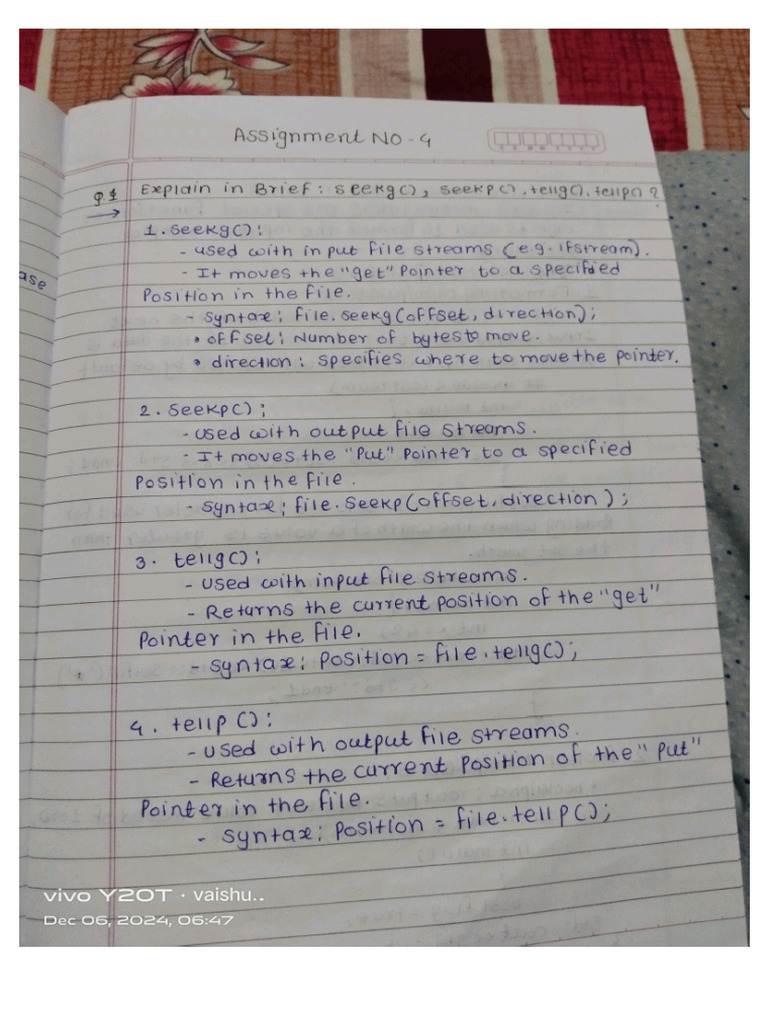 Assignment NO - 4
Q.1 Explain in Brief : seekg(), seekp(), tellg(), tellp() ?
1. seekg() :
- used with input file streams (e.g. ifstream).
- It moves the "get" Pointer to a specified
Position in the file.
- syntax : file.seekg(offset, direction);
• offset : Number of bytes to move.
• direction : specifies where to move the pointer.
2. seekp() :
- used with output file streams.
- It moves the "Put" Pointer to a specified
Position in the file.
- syntax : file.seekp(offset, direction);
3. tellg() :
- used with input file streams.
- Returns the current position of the "get"
Pointer in the file.
- syntax : Position = file.tellg();
4. tellp() :
- used with output file streams.
- Returns the current Position of the "Put"
Pointer in the file.
- syntax : Position = file.tellp();
ase
vivo Y20T · vaishu..
Dec 06, 2024, 06:47